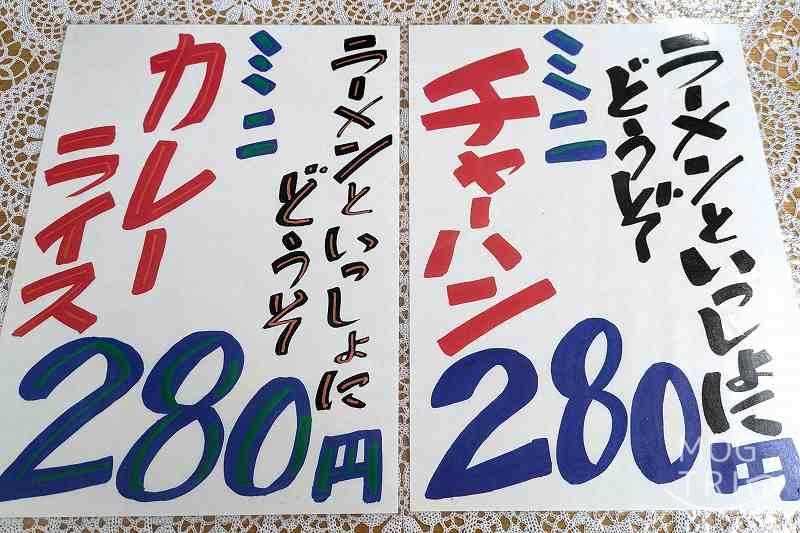 ラーメンといっしょに
どうぞ
ミニ
カレー
ライス
280円
ラーメンといっしょに
どうぞ
ミニ
チャーハン
280円
MOG
TRIP